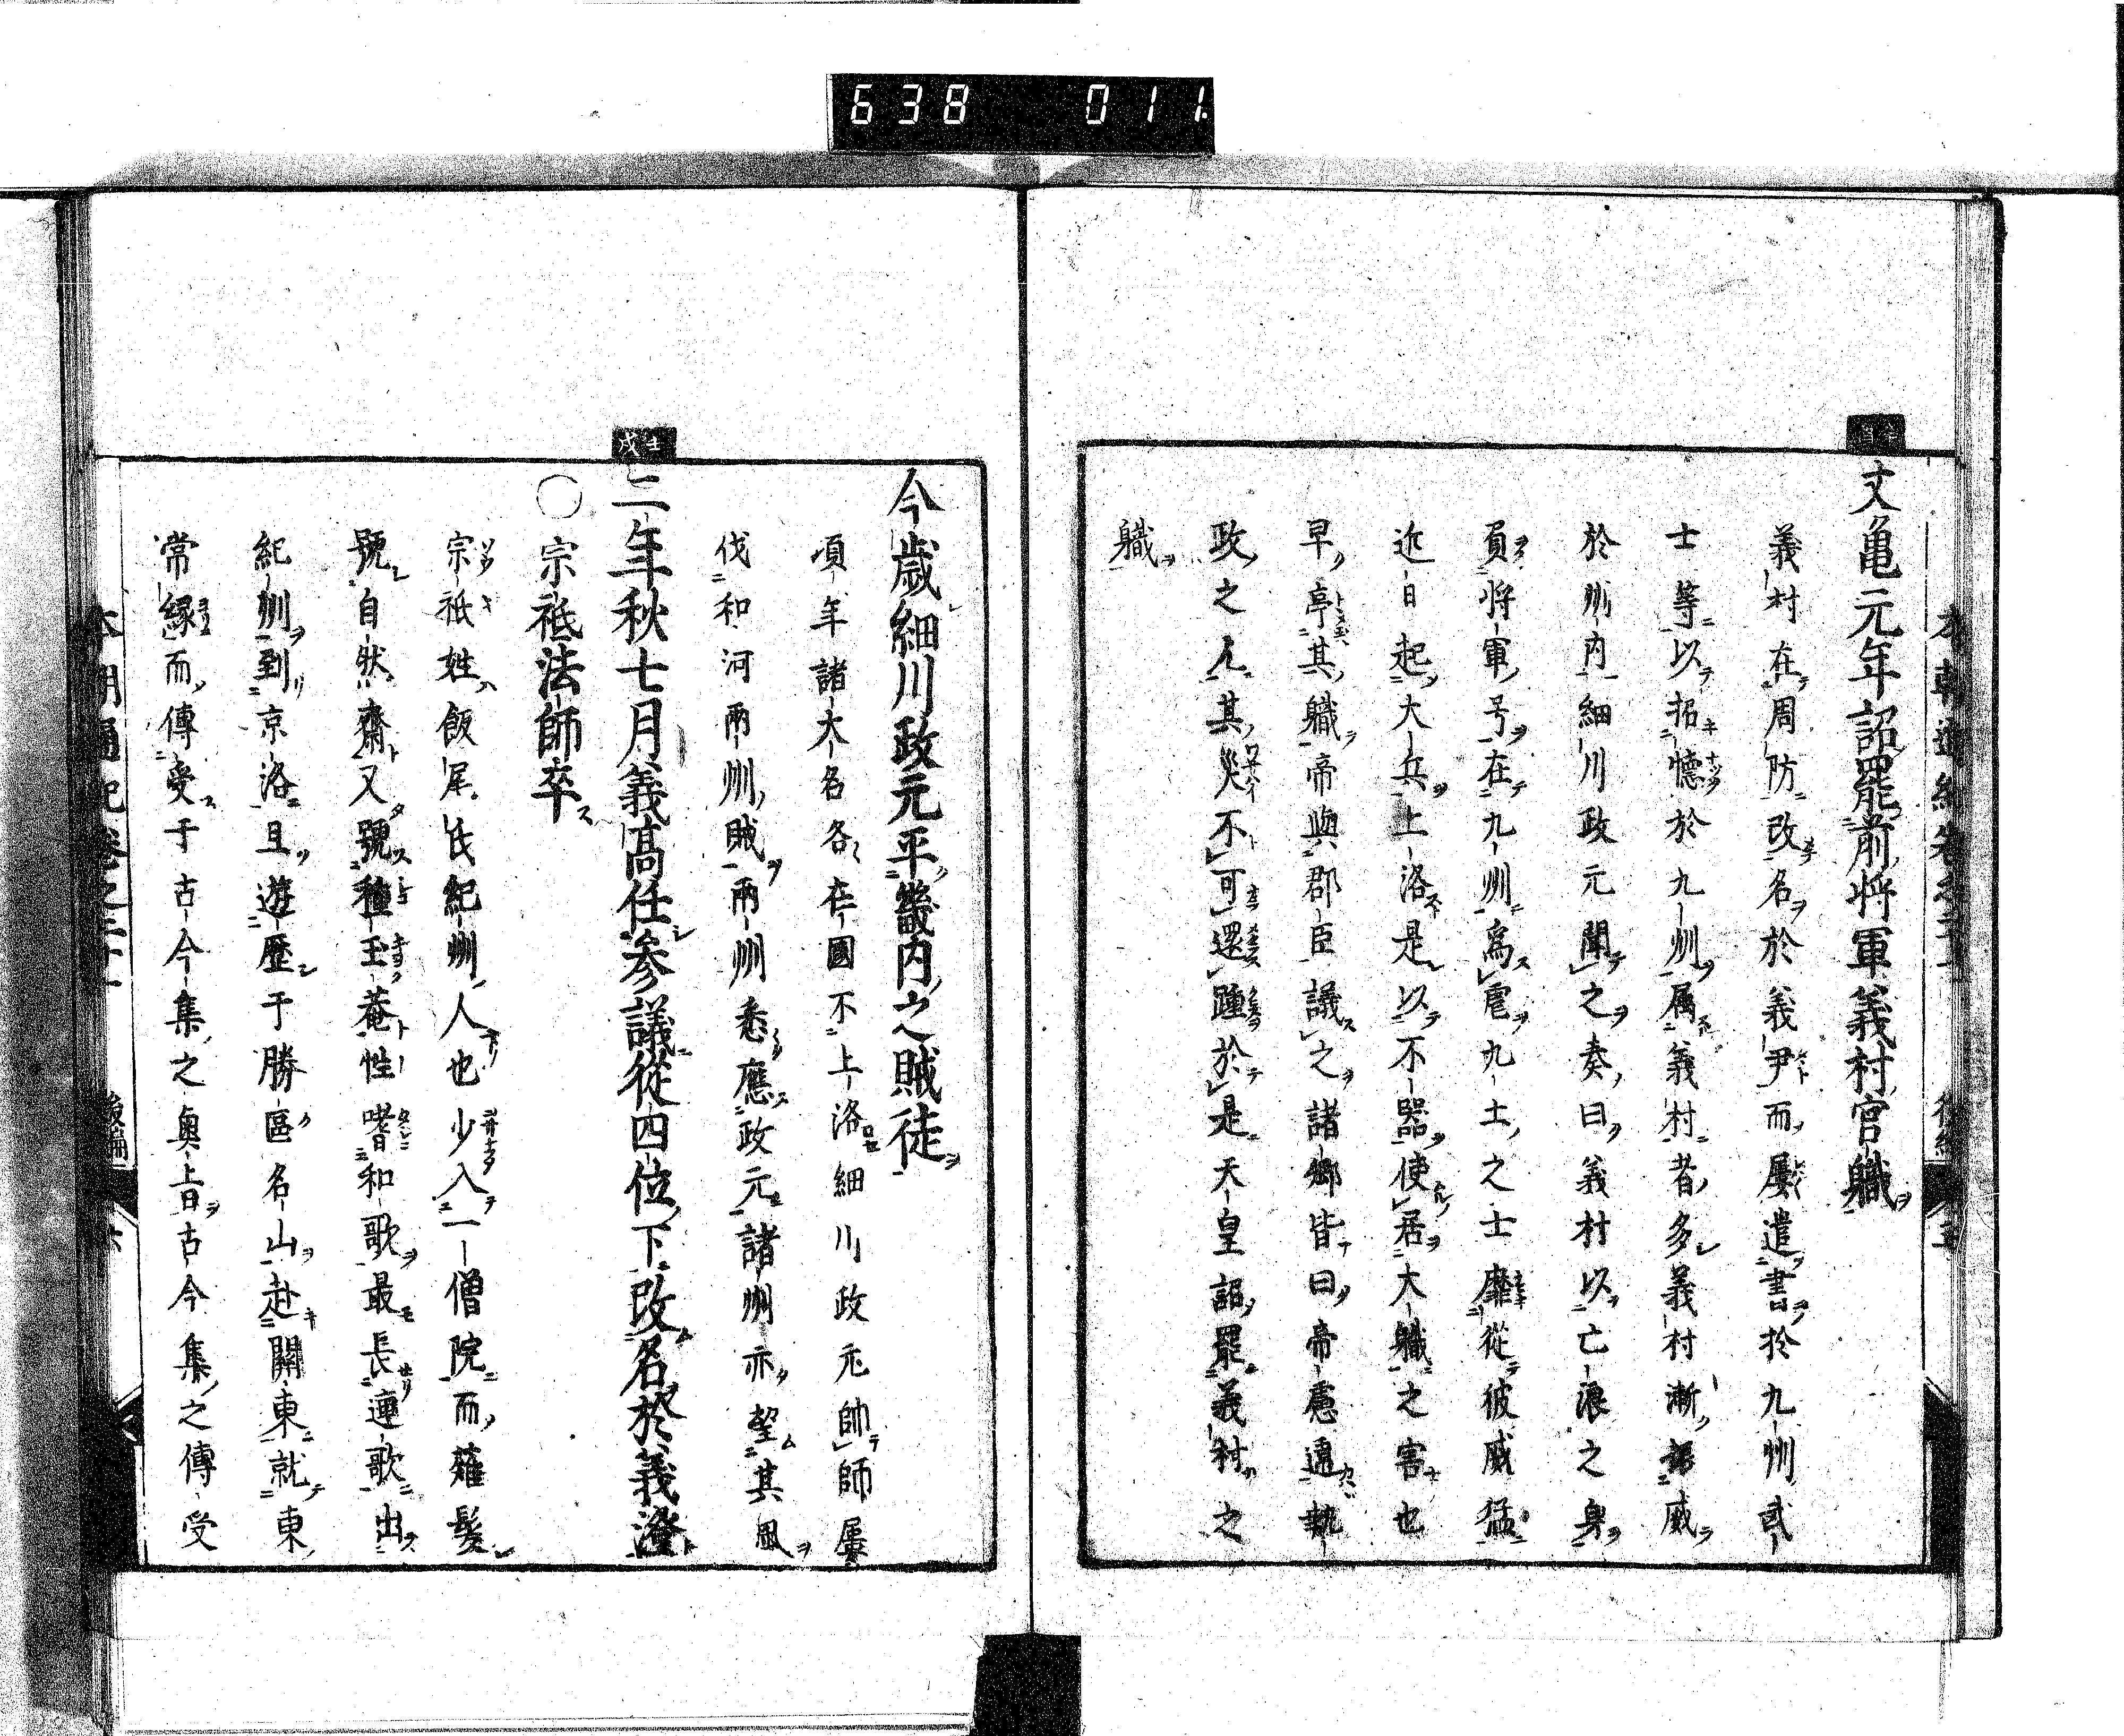 638 011
本朝通紀卷之二十一 後編 五
辛酉
文亀元年詔罷前将軍義村官職
義村在周防改名於義尹而屢遣書於九州武
士等以招懐於九州属義村者多義村漸振威
於州内細川政元聞之奏曰義村以亡浪之身
負将軍号在九州為虐九土之士靡従彼威猛
近日起大兵上洛是以不器使居大職之害也
早亭其職帝與郡臣議之諸郷皆曰帝慮適執
政之人其災不可還踵於是天皇詔罷義村之
職
今歳細川政元平畿内之賊徒
項年諸大名各在國不上洛細川政元帥師屢
伐和河兩州賊兩州悉應政元諸州亦望其風
壬戌
二年秋七月義高任参議從四位下改名於義澄
○宗祇法師卒
宗祇姓飯尾氏紀州人也少入一僧院而薙髪
號自然齋又號種玉菴性嗜和歌最長連歌出
紀州到京洛且遊歷于勝區名山赴關東就東
常縁而傳受于古今集之奥旨古今集之傳受
本朝通紀卷之二十一 後編 六